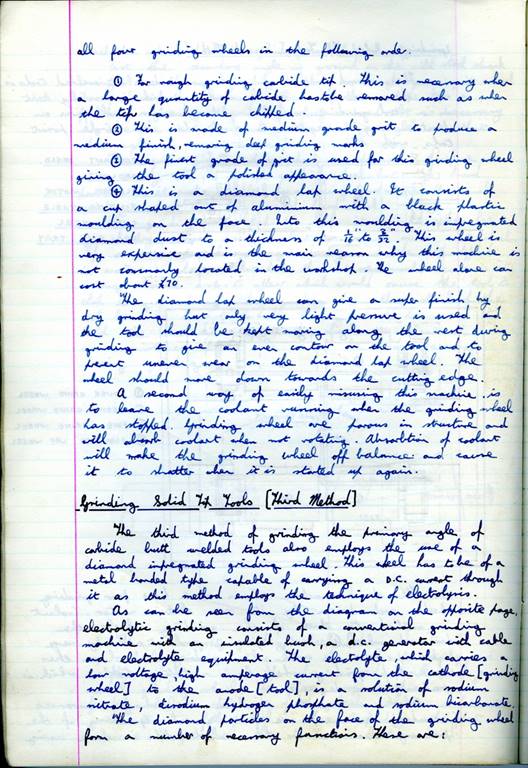 all four grinding wheels in the following order.
① For rough grinding carbide tip. This is necessary when
a large quantity of carbide has to be removed such as when
the tip has become chipped.
② This is made of medium grade grit to produce a
medium finish, removing deep grinding marks
③ The finest grade of grit is used for this grinding wheel
giving the tool a polished appearance.
④ This is a diamond lap wheel. It consists of
a cup shaped out of aluminium with a black plastic
moulding on the face. Into this moulding is impregnated
diamond dust to a thickness of 1/16" to 3/32". This wheel is
very expensive and is the main reason why this machine is
not commonly located in the workshop. The wheel alone can
cost about £70.
The diamond lap wheel can give a super finish by
dry grinding but only very light pressure is used and
the tool should be kept moving along the rest during
grinding to give an even contour on the tool and to
prevent uneven wear on the diamond lap wheel. The
wheel should move down towards the cutting edge.
A second way of easily misusing this machine is
to leave the coolant running when the grinding wheel
has stopped. Grinding wheel are porous in structure and
will absorb coolant when not rotating. Absorbtion of coolant
will make the grinding wheel off balance and cause
it to shatter when it is started up again.
Grinding Solid Tip Tools [Third Method]
The third method of grinding the primary angle of
carbide butt welded tools also employs the use of a
diamond impregnated grinding wheel. This wheel has to be of a
metal bonded type capable of carrying a D.C. current through
it as this method employs the technique of electrolysis.
As can be seen from the diagram on the opposite page,
electrolytic grinding consists of a conventional grinding
machine with an insulated bush, a d.c. generator with cable
and electrolyte equipment. The electrolyte, which carries a
low voltage, high amperage current from the cathode [grinding
wheel] to the anode [tool], is a solution of sodium
nitrate, disodium hydrogen phosphate and sodium bicarbonate.
The diamond particles on the face of the grinding wheel
form a number of necessary functions. These are: